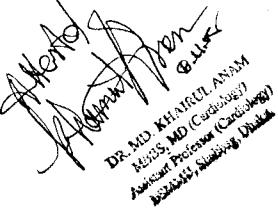 Attested
DR. MD. KHAIRUL ANAM
MBBS, MD (Cardiology)
Assistant Professor (Cardiology)
BSMMU, Shahbag, Dhaka